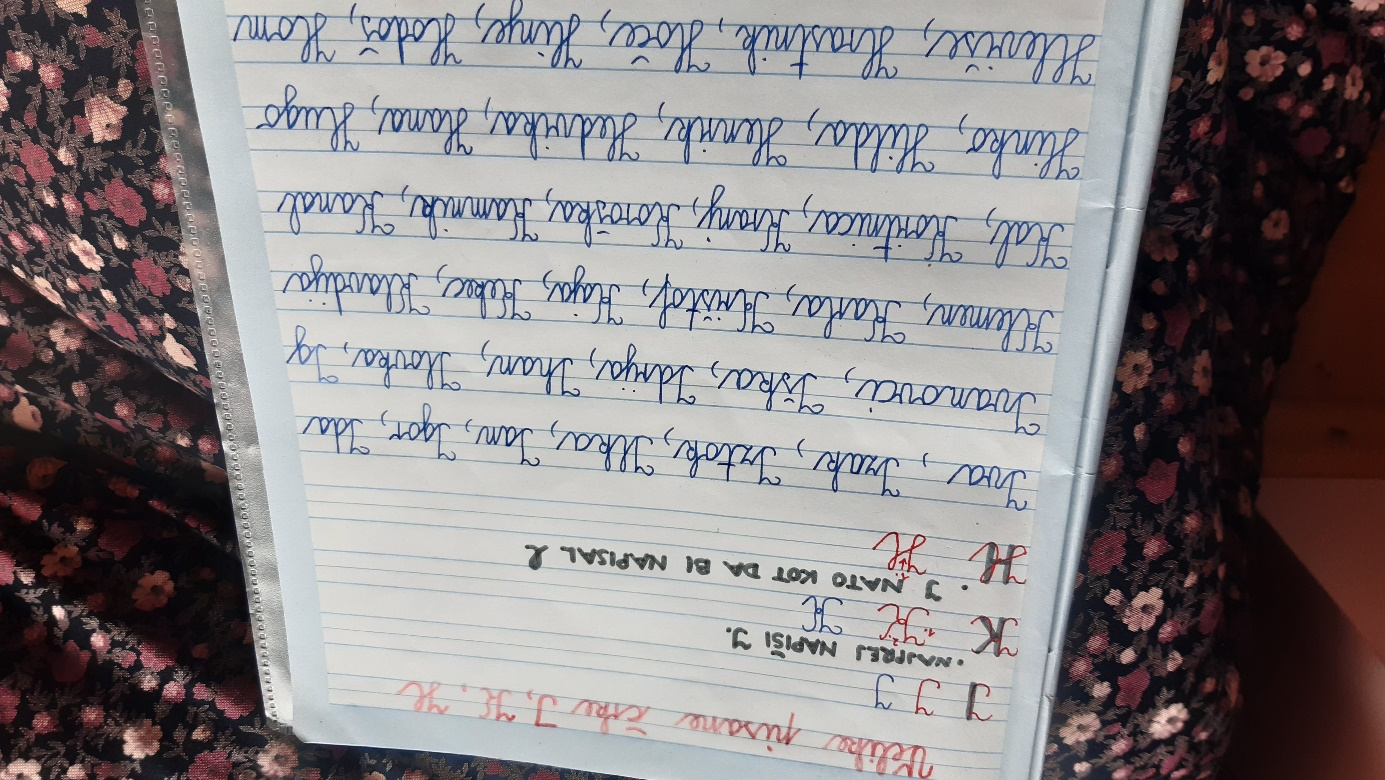 Velike pisane črke I, K, H
I I I
• NAJPREJ NAPIŠI I.
K K K
• I NATO KOT DA BI NAPISAL l
H H
Iva, Izak, Iztok, Ilka, Ian, Igor, Ida
Ivanovci, Iška, Idrija, Ihan, Ilovka, Ig
Klemen, Karla, Krištof, Kaja, Kekec, Klavdija
Kal, Kortnica, Kranj, Koroška, Kamnik, Kanal
Hinko, Hilda, Henrik, Hedvika, Hana, Hugo
Hlevišče, Hrastnik, Hoče, Hinje, Hodoš, Hom